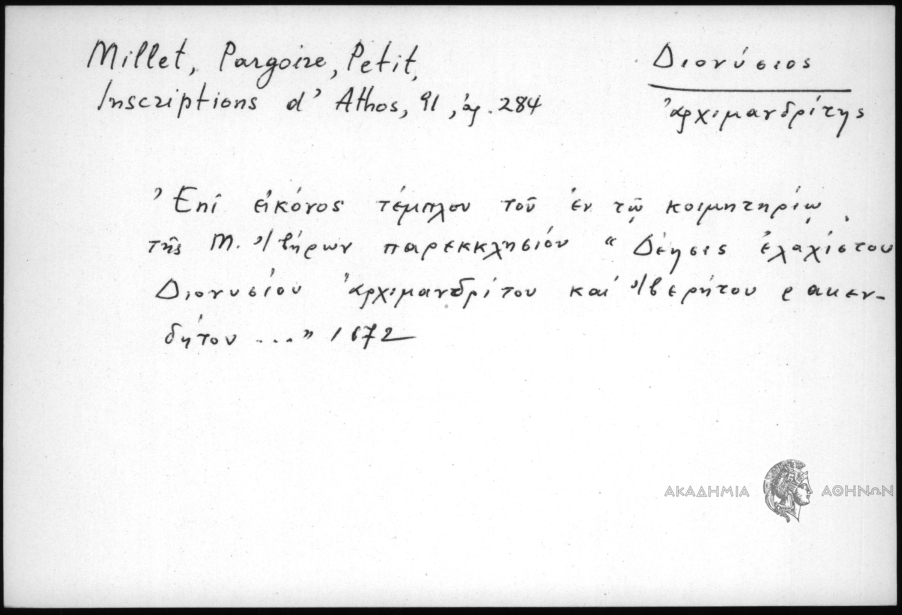 Millet, Pargoire, Petit,
Inscriptions d' Athos, 91, ἀρ. 284
Διονύσιος
ἀρχιμανδρίτης
Ἐπί εἰκόνος τέμπλου τοῦ ἐν τῷ κοιμητηρίῳ
τῆς Μ. Ἰβήρων παρεκκλησίου "Δέησις ἐλαχίστου
Διονυσίου ἀρχιμανδρίτου καί Ἰβερήτου ρακεν-
δήτου ..." 1672
ΑΚΑΔΗΜΙΑ ΑΘΗΝΩΝ